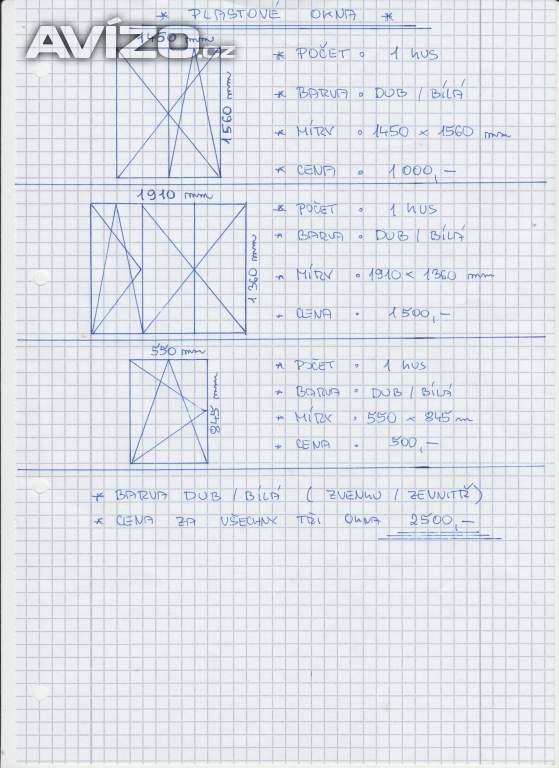 * PLASTOVÉ OKNA *
AVÍZO.cz
1450 mm
1560 mm
* POČET • 1 KUS
* BARVA • DUB / BÍLÁ
* MÍRY • 1450 × 1560 mm
* CENA • 1 000,-
1910 mm
1360 mm
* POČET • 1 KUS
* BARVA • DUB / BÍLÁ
* MÍRY • 1910 × 1360 mm
* CENA • 1 500,-
550 mm
845 mm
* POČET • 1 KUS
* BARVA • DUB / BÍLÁ
* MÍRY • 550 × 845 m
* CENA • 500,-
* BARVA DUB / BÍLÁ ( ZVENKU / ZEVNITŘ )
* CENA ZA VŠECHNY TŘI OKNA 2500,-